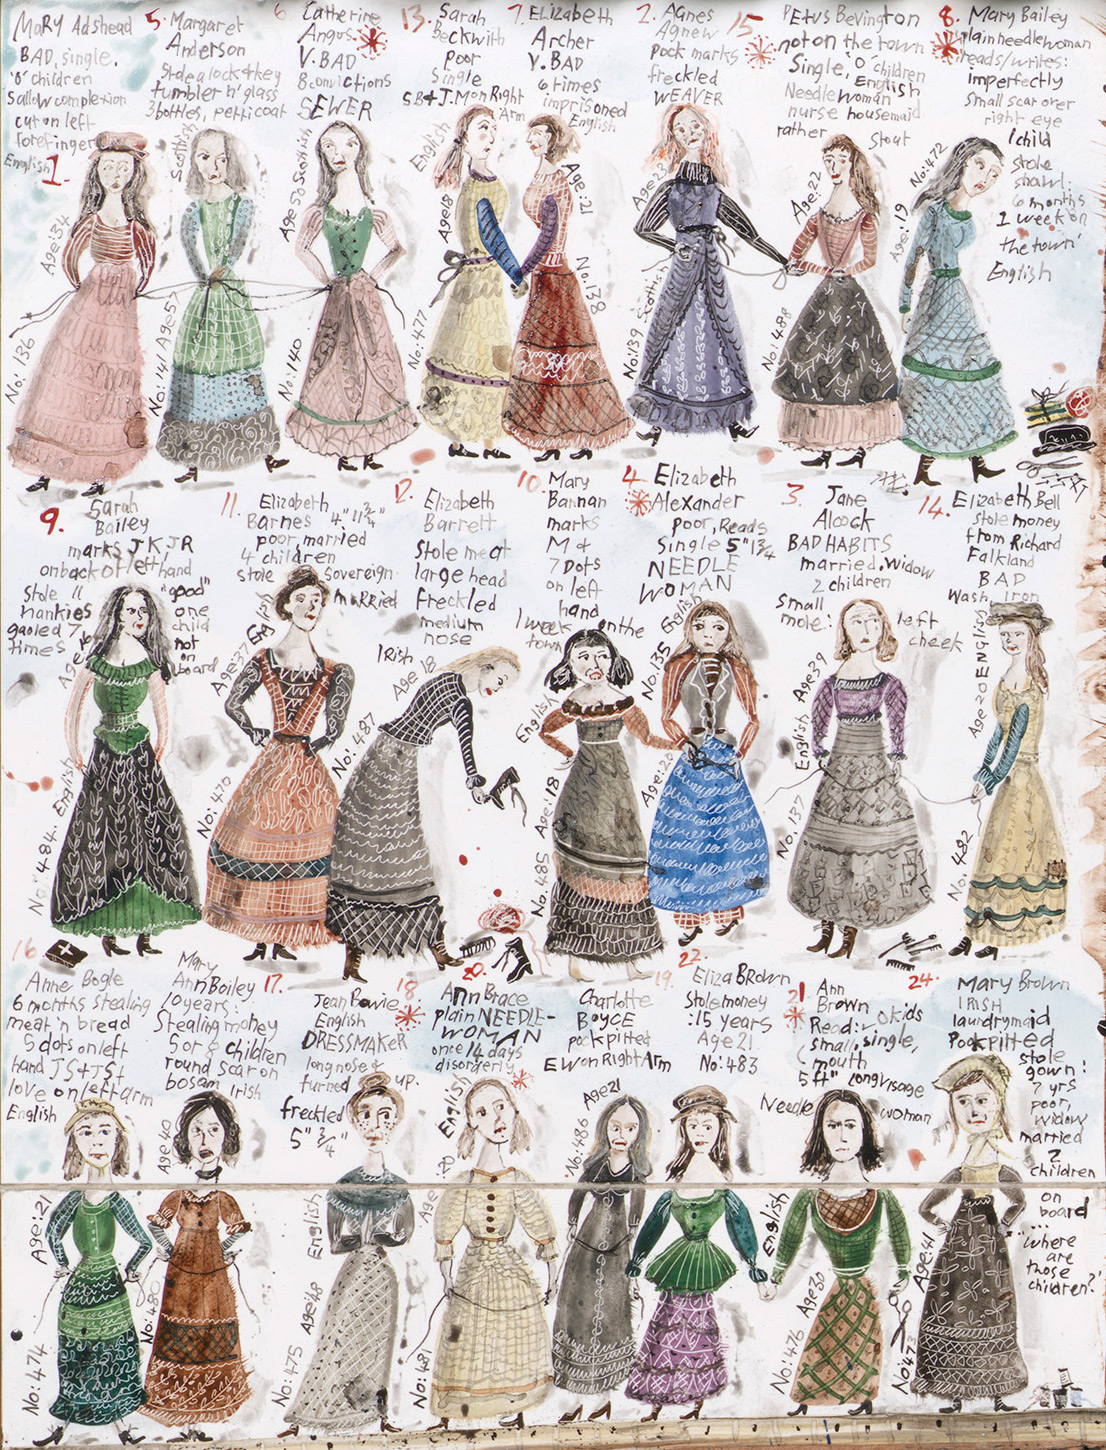 MARY Adshead
BAD, single.
'0' children
Sallow complexion
cut on left
forefinger
English 1.
Age: 34
No: 136
5. Margaret
Anderson
Stole a lock & key
tumbler n' glass
3 bottles, petticoat
Scottish
No: 141 Age 57
6. Catherine
Angus
V. BAD
8 convictions
SEWER
Age 50 Scottish
No: 140
13. Sarah
Beckwith
Poor
Single
SB & J.M on Right
Arm
English
Age: 18
No: 477
7. ELIZABETH
Archer
V. BAD
6 times
imprisoned
English
Age: 21
No: 138
2. AGNES
Agnew
pock marks
freckled
WEAVER
Age: 22
No: 139 Scottish
15. PETUS Bevington
not on the town
Single, '0' children
English
Needlewoman
nurse housemaid
rather stout
Age: 22
No: 488
8. Mary Bailey
plain needlewoman
reads/writes:
imperfectly
small scar over
right eye
1 child
stole
shawl:
6 months
1 week on
'the town'
English
No: 472
Age: 19
9. Sarah
Bailey
marks J K J R
on back of left hand
stole 11
hankies
gaoled 7
times
"good"
one
child
not
on
board
English
No: 484
11. Elizabeth
Barnes 4" 11 3/4"
poor, married
4 children
stole sovereign
married
English
Age: 37
No: 470
12. Elizabeth
Barrett
Stole meat
large head
freckled
medium
nose
IRish
Age 18
No: 487
10. Mary
Bannan
marks
M &
7 Dots
on left
hand
1 week on the
town
English
Age: 18
No: 485
4. Elizabeth
Alexander
poor, Reads
Single 5" 1 3/4
NEEDLE
WOMAN
English
No: 135
Age: 20
3. Jane
Alcock
BAD HABITS
married, widow
2 children
small
mole: left
cheek
English Age 39
No: 137
14. Elizabeth Bell
stole money
from Richard
Falkland
BAD
Wash, Iron
Age: 20 ENGLISH
No: 482
16
Anne Bogle
6 months stealing
meat 'n bread
5 dots on left
hand JS & JS &
love on left arm
English
Age: 21
No: 474
17. Mary
Ann Boiley
10 years:
Stealing money
5 or 6 children
round scar on
bosom Irish
Age 40
No: 480
18. Jean Bowie
English
DRESSMAKER
long nose &
turned up.
freckled
5" 3/4"
English
Age: 28
No: 475
20. Ann Brace
plain NEEDLE-
WOMAN
once 14 days
disorderly
English
Age :20
No: 481
19. Charlotte
BOYCE
pock pitted
E W on Right Arm
Age 21
No: 486
22. ELIZA BROWN
Stole money
:15 years
Age 21.
No: 483
21. Ann
Brown 0 kids
Read: v
small, single,
mouth
5ft" long visage
Needle woman
English
Age: 30
No: 476
24. MARY Brown
IRISH
laundrymaid
Pock pitted
stole
gown:
7 yrs
poor,
widow
married
2
children
on
board
...
"where
are
those
children?"
Age: 41
No 473